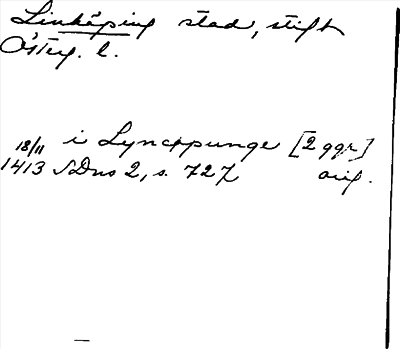 Linköping stad, stift
Österg. l.
18/11 i Lyncøpunge [2 ggr]
1413 SDns 2, s. 727 orig.